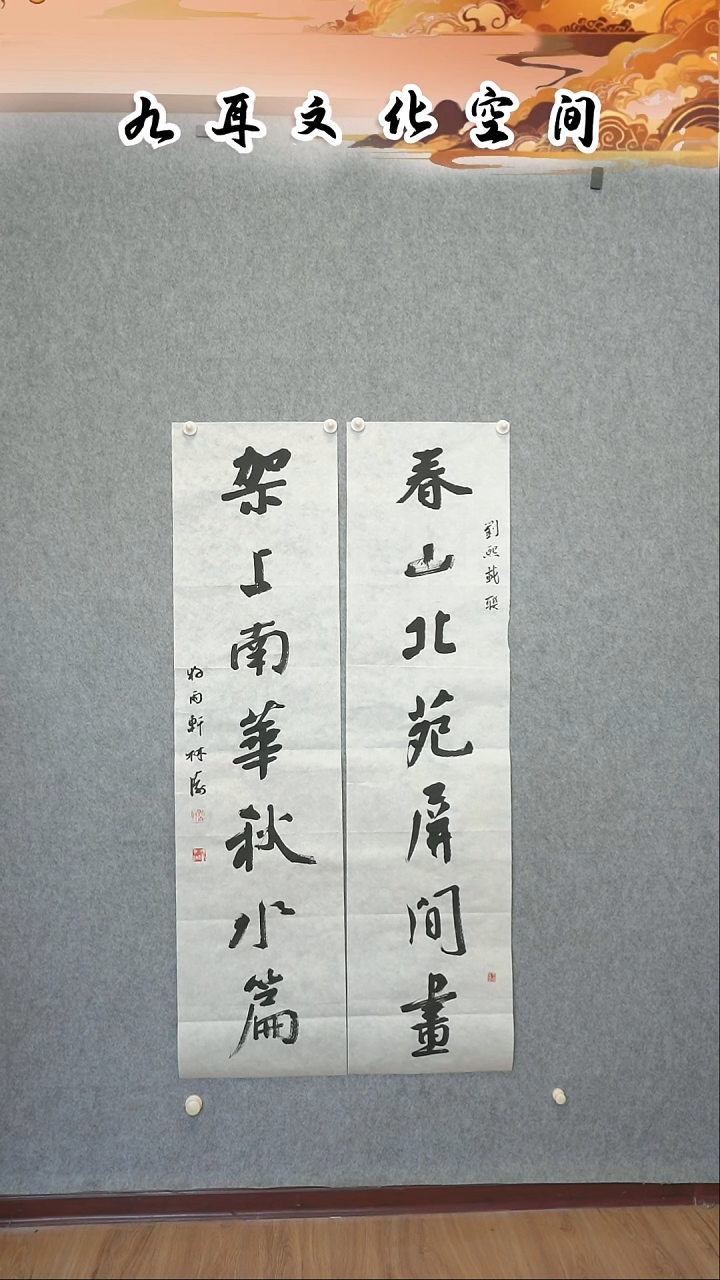 九耳文化空间
春山北苑屏間畫
劉熙載聯
架上南華秋水篇
雨軒林